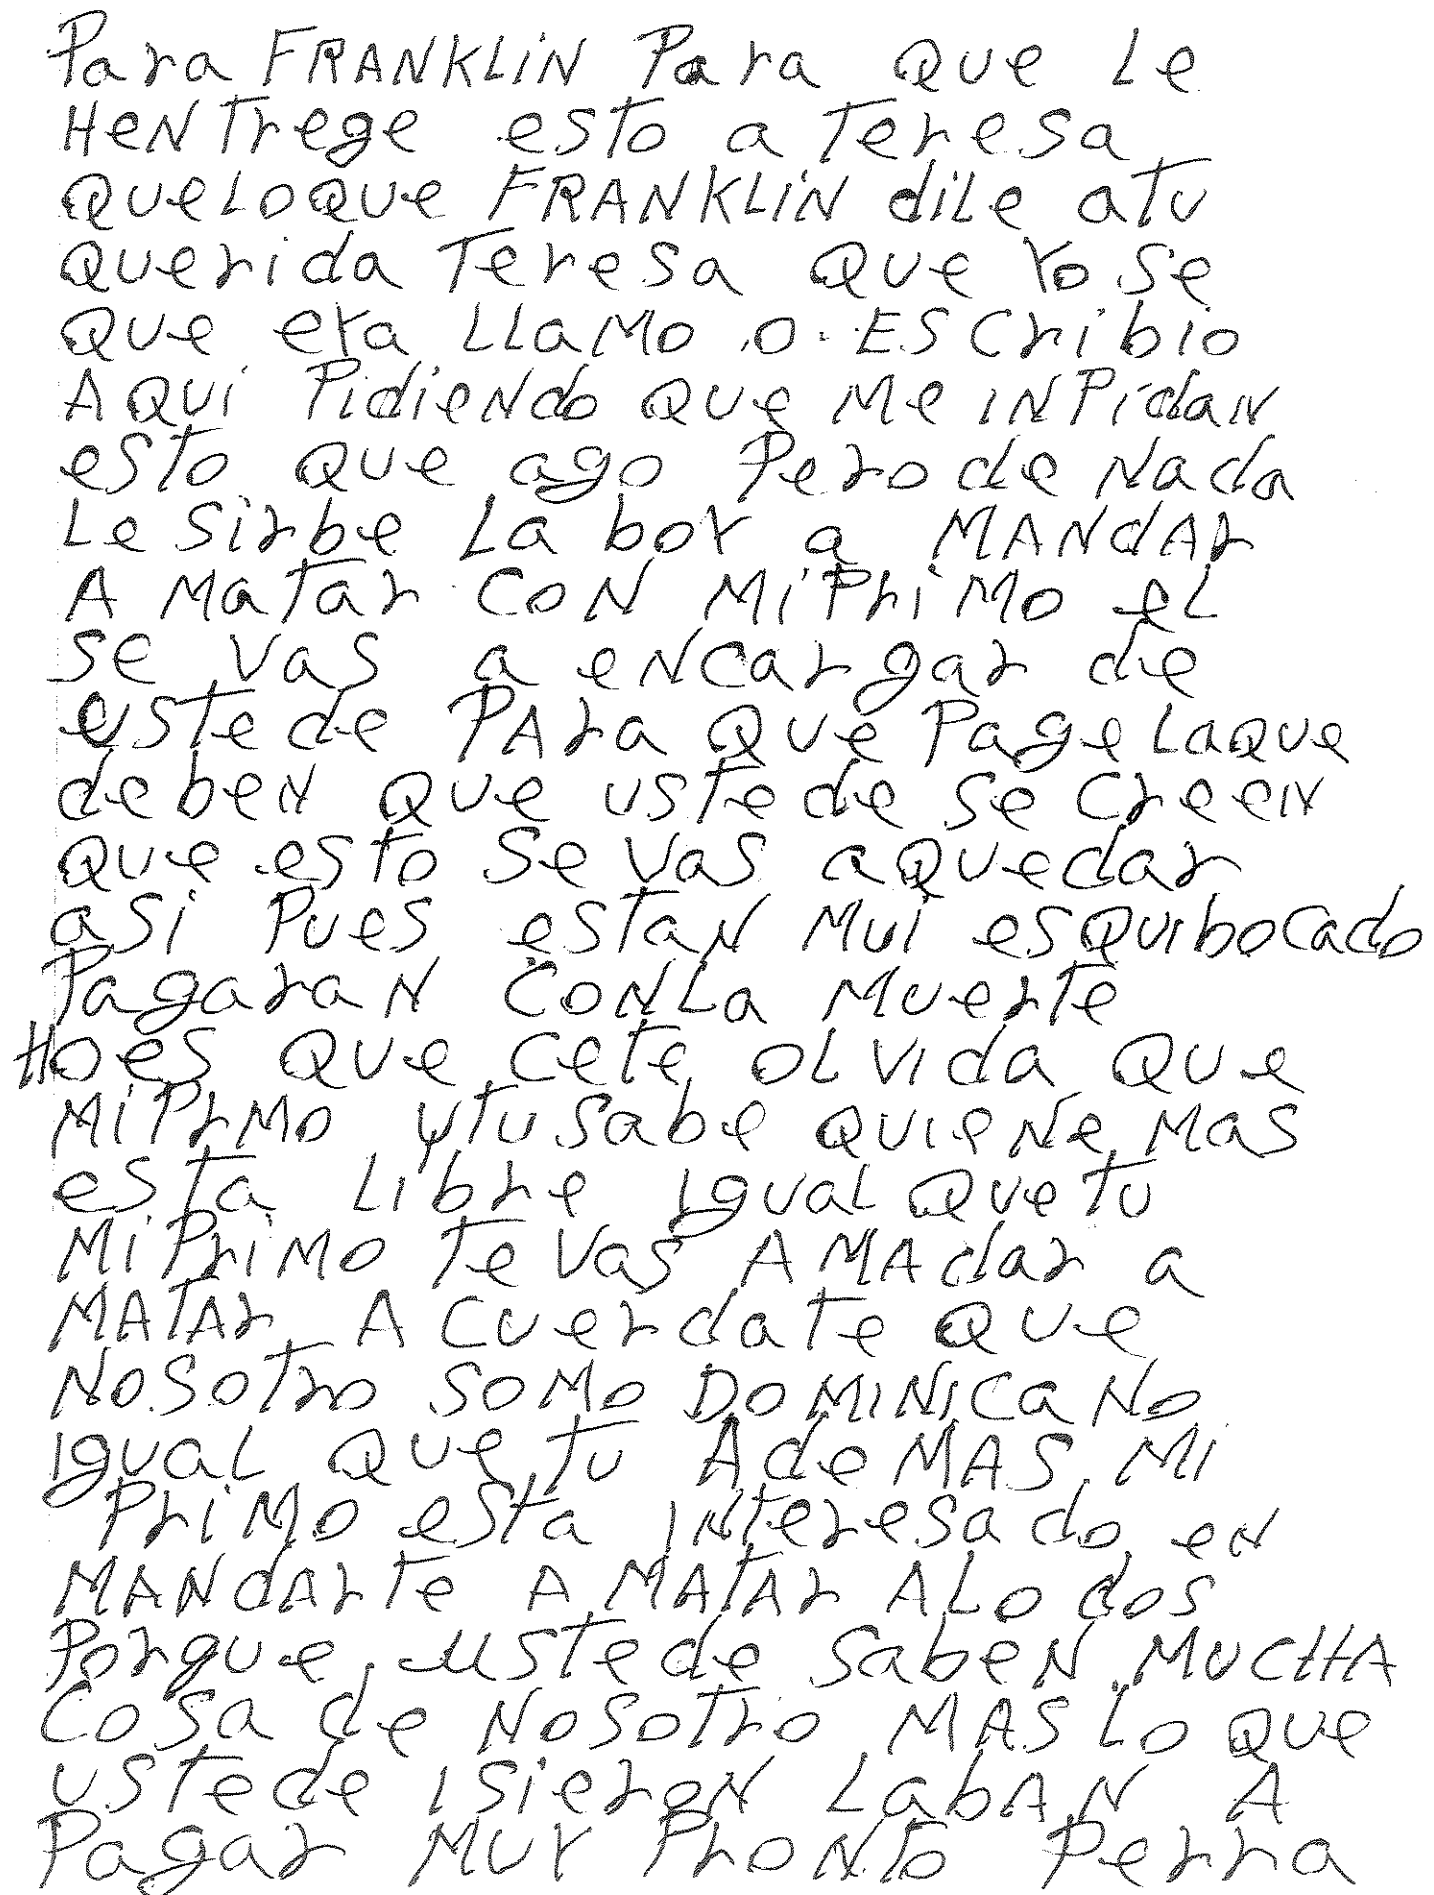 Para FRANKLIN Para QUE Le
HeNTrege esto a Teresa
QUELOQUE FRANKLIN dile atu
Querida Teresa QUE Yo Se
QUE eYa LLaMo o EScribio
AQUi Pidiendo QUE Me INPidaN
eSTo QUE ago Pero de Nada
Le Sirbe La boY a MANdAr
A MaTar CON Mi PriMo eL
Se Vas a eNCargar de
USTede PAra QUE Page LaQUe
debeN QUE USTede Se CreeN
QUE esto Se Vas aQuedar
aSi PUES eSTaN MUi eSQUibocado
PagaraN CONLa MUerTe
HoeS QUE CeTe OLVida QUE
Mi PrMo YTU Sabe QUieNe MaS
eSTa Libre igUaL QUE TU
Mi PriMo Te VaS A MAdar a
MATAr ACUerdaTe QUE
NoSoTro SoMo DoMiNiCaNo
igUaL QUE TU AdeMAS Mi
PriMo eSTa iNTereSado eN
MANdArTe A MATAr ALo doS
Porque USTede SabeN MUCHA
CoSa de NoSoTro MAS Lo QUE
USTede iSieroN LabAN A
Pagar MUY ProNTo Perra